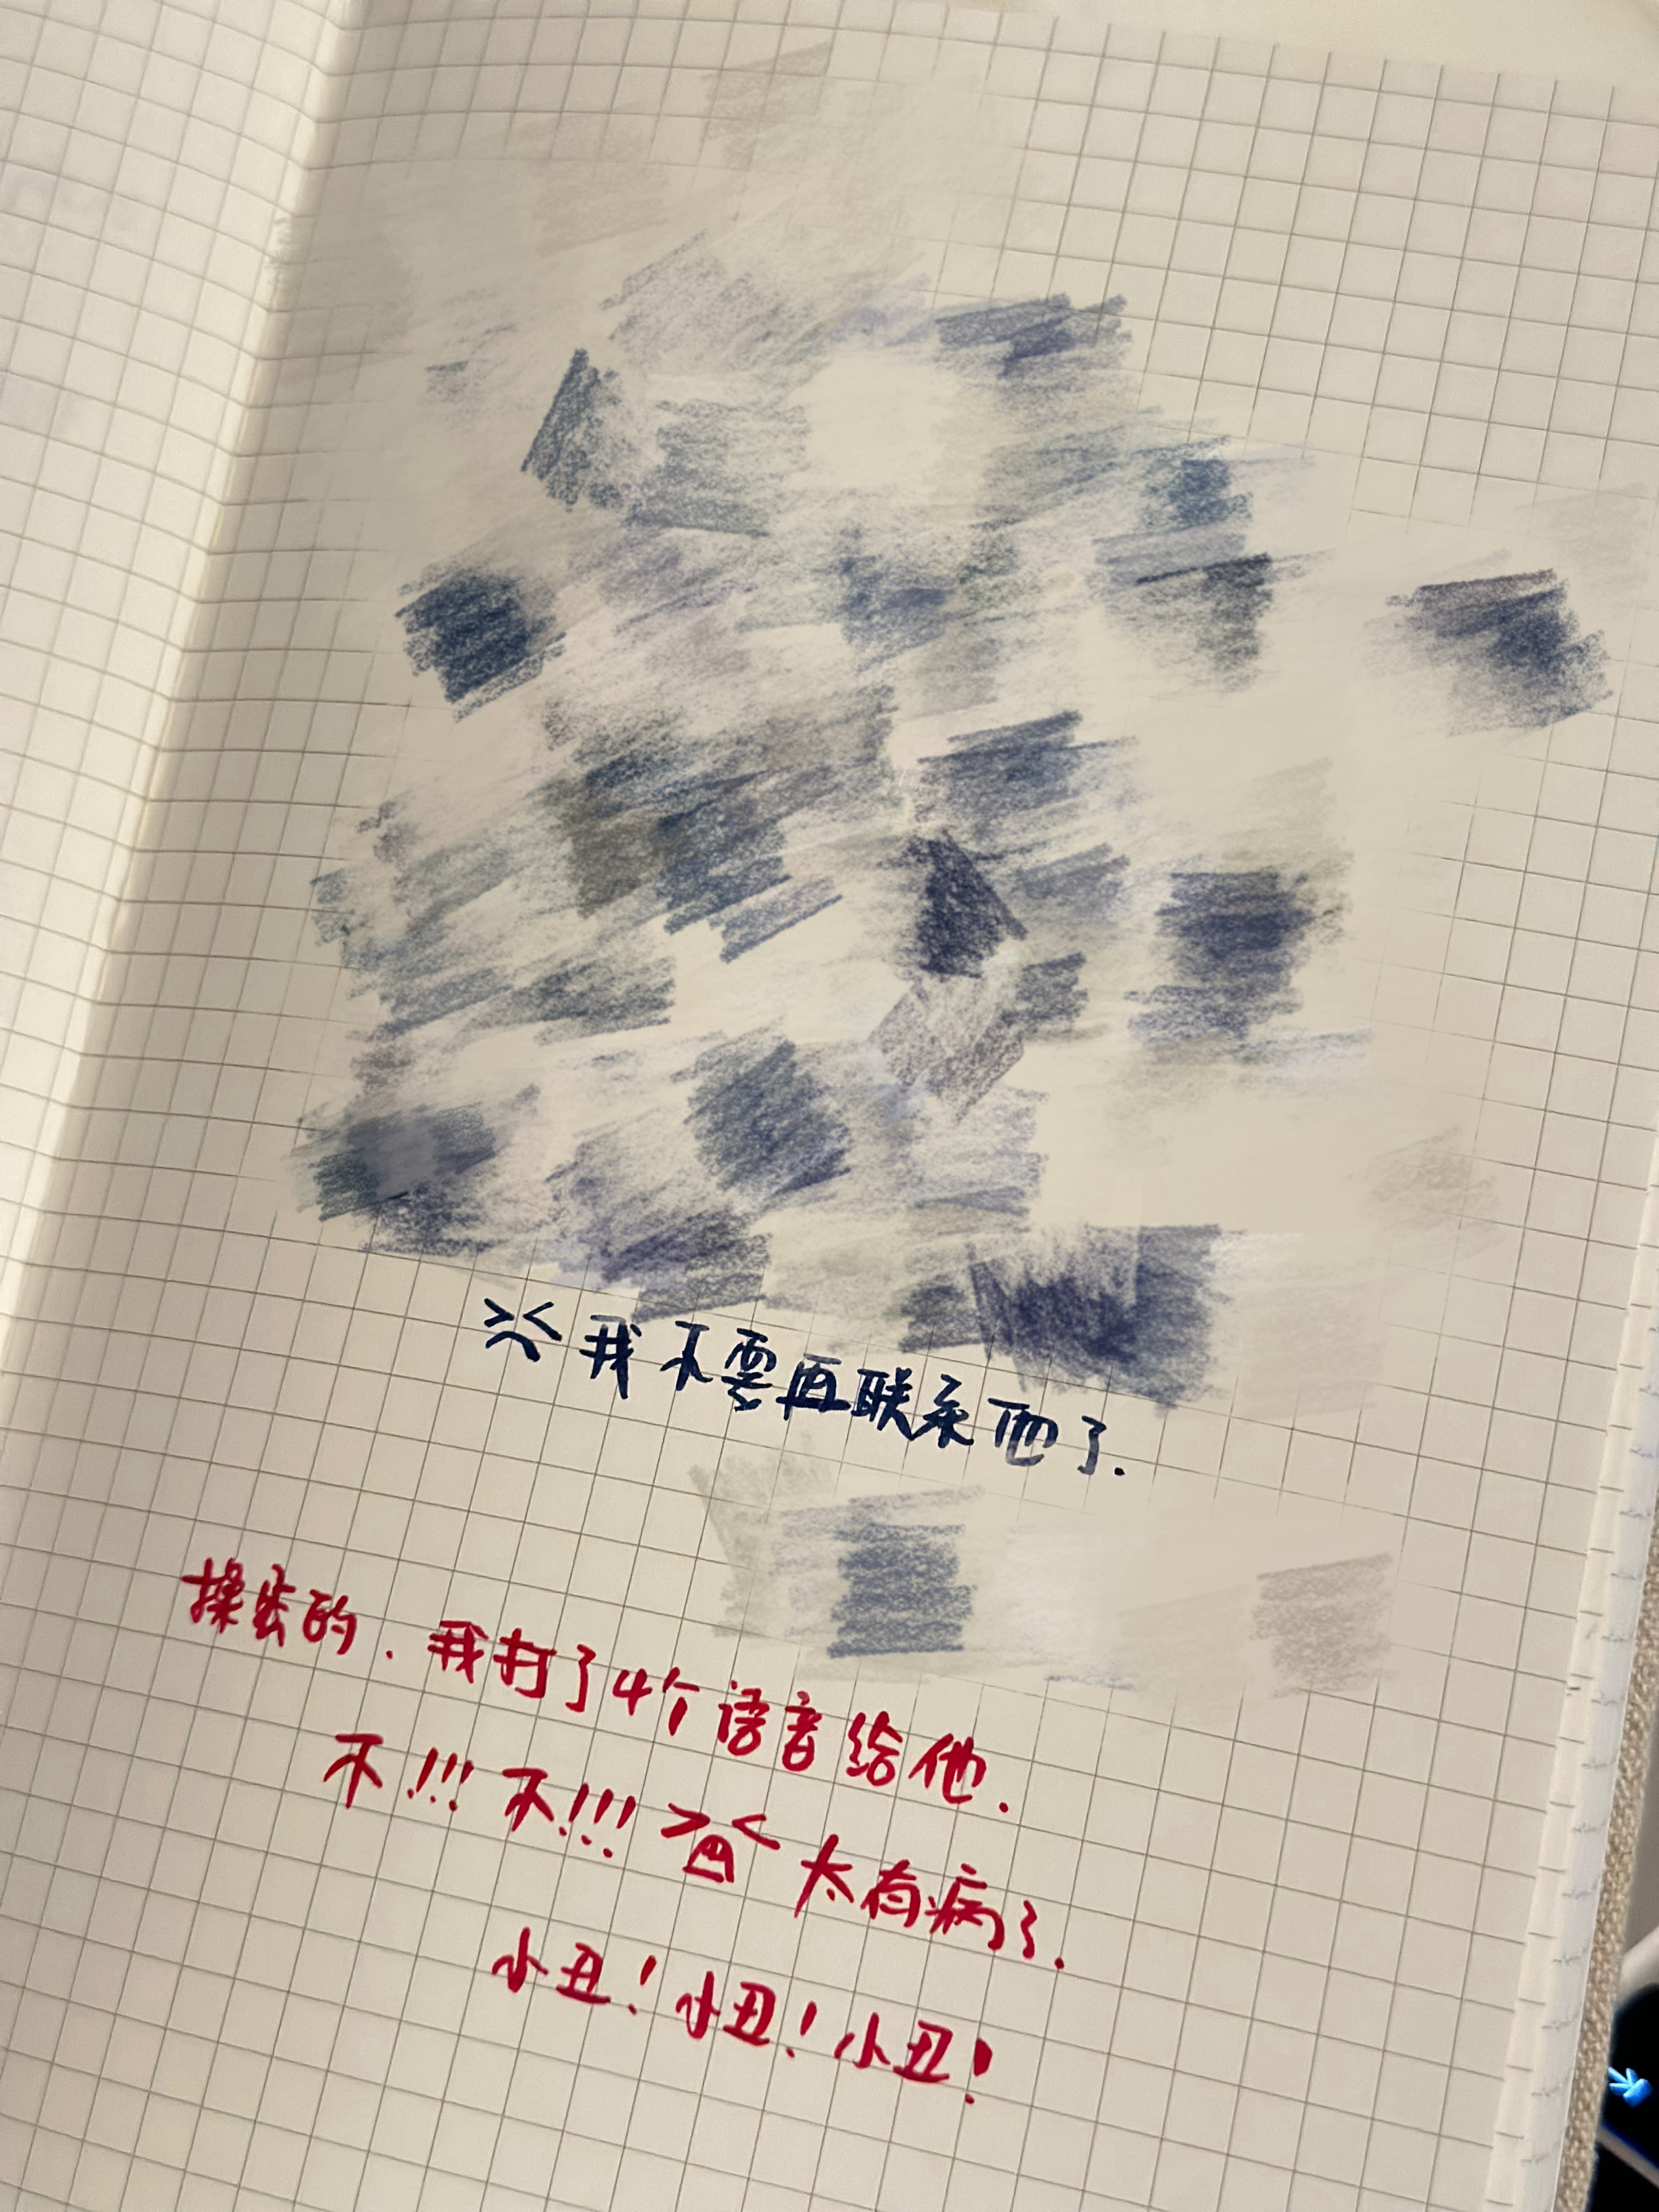 ><我不要再联系他了.
操蛋的.我打了4个语音给他.
不!!!不!!!><太有病了.
小丑!小丑!小丑!